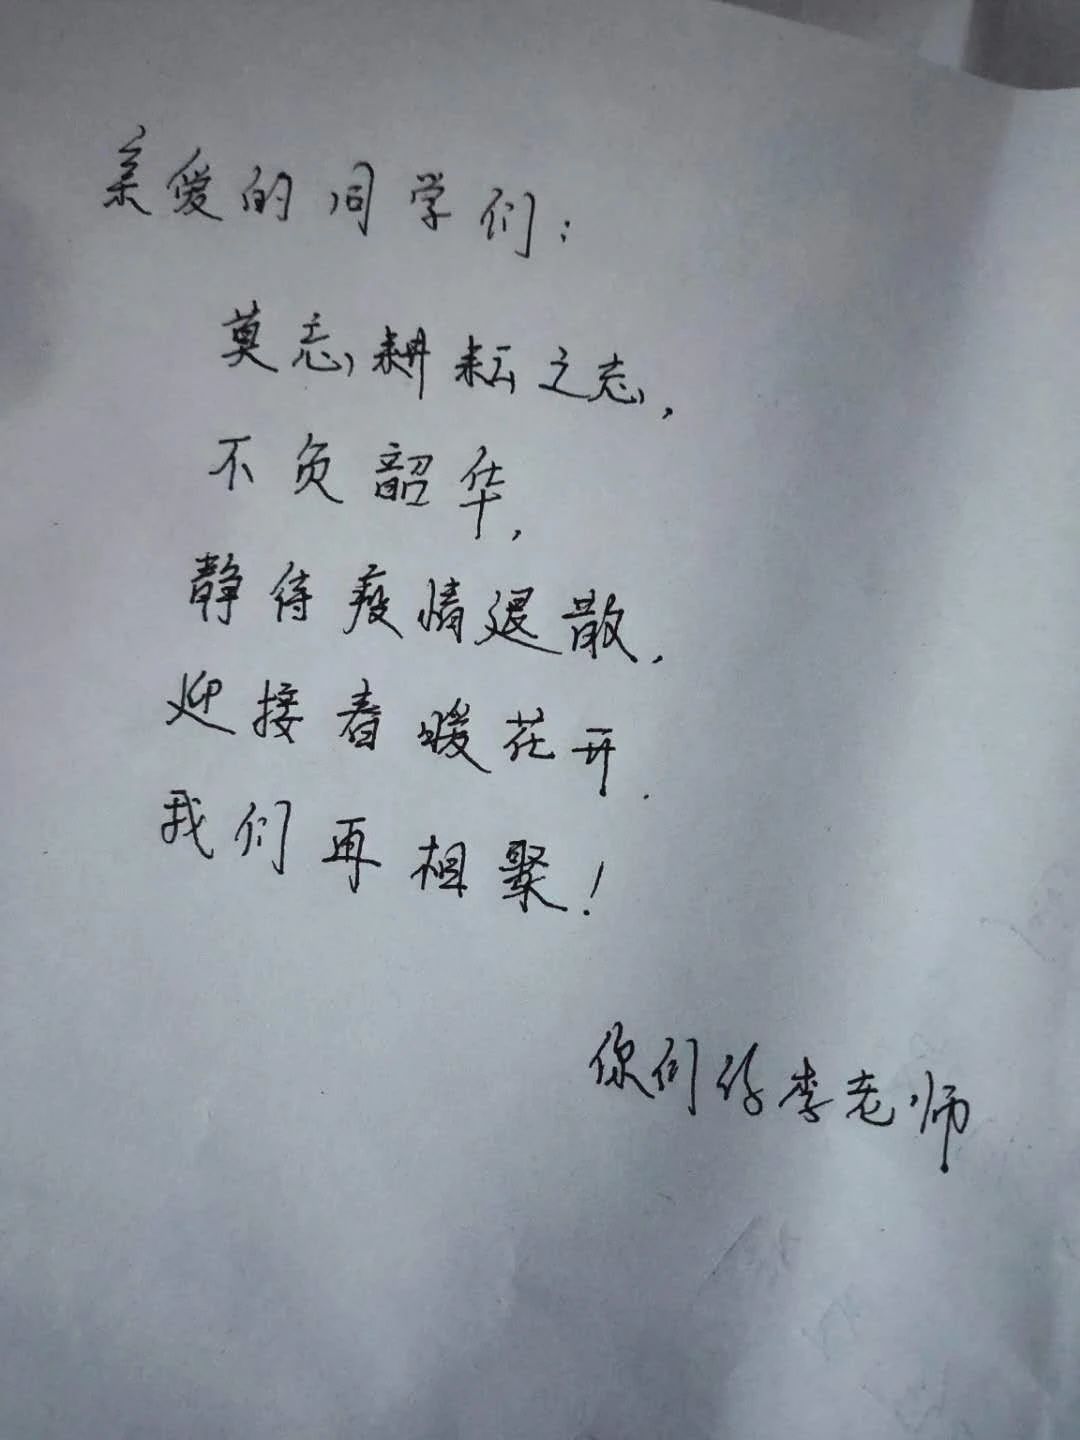 亲爱的同学们：
莫忘耕耘之志，
不负韶华，
静待疫情退散，
迎接春暖花开.
我们再相聚！
你们的李老师